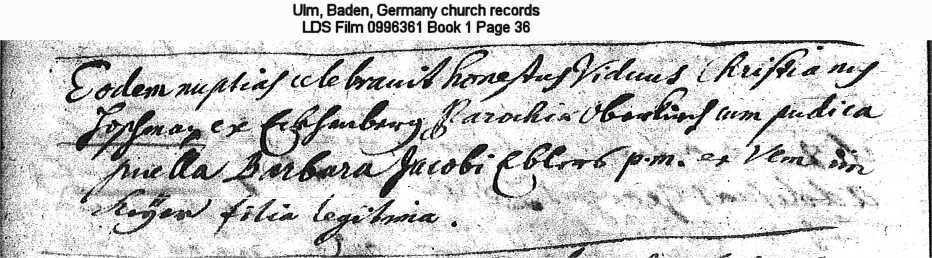 Ulm, Baden, Germany church records
LDS Film 0996361 Book 1 Page 36
Eodem nuptias celebravit honestus Viduus Christianus
ex Parochia Oberkirch cum pudica
puella Barbara Jacobi Eblers p.m. ex Ulm im
filia legitima.